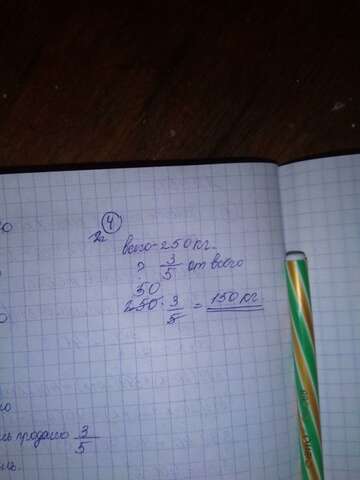 4
2г
всего-250кг.
? 3/5 от всего
50
250·3/5 = 150кг
продано 3/5